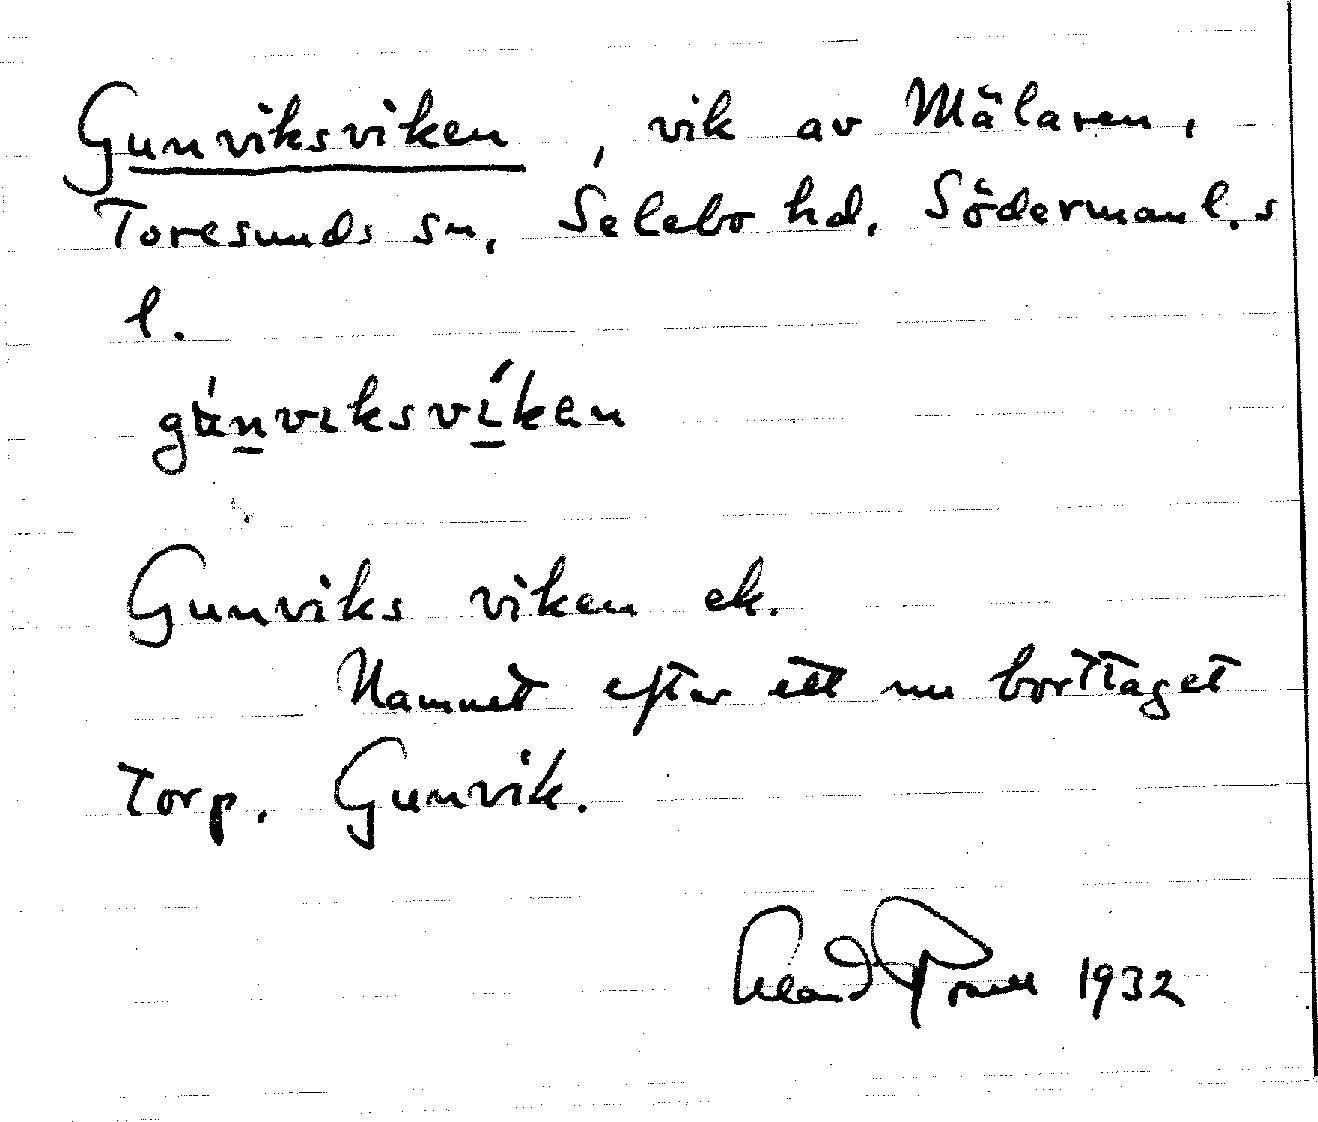 Gunviksviken, vik av Mälaren,
Toresunds sn, Selebo hd. Södermanl.s
l.
gúnviksvíken
Gunviks viken ek.
Namnet efter ett nu borttaget
torp, Gunvik.
1932